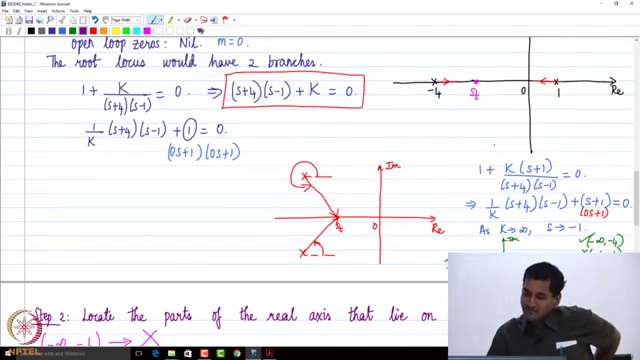 EE2040_Notes_7 - Windows Journal
Page Width
open loop zeros: Nil. m=0.
The root locus would have 2 branches.
1 + K/((s+4)(s-1)) = 0 ⇒ (s+4)(s-1) + K = 0.
1/K (s+4)(s-1) + 1 = 0.
(0s+1)(0s+1)
-4
0
1
Re
Im
0
Re
1 + K(s+1)/((s+4)(s-1)) = 0.
⇒ 1/K (s+4)(s-1) + (s+1) = 0.
(0s+1)
As K→∞, s→-1.
Im
(-∞,-4)
Step 2: Locate the parts of the real axis that lie on
→ X
NPTEL